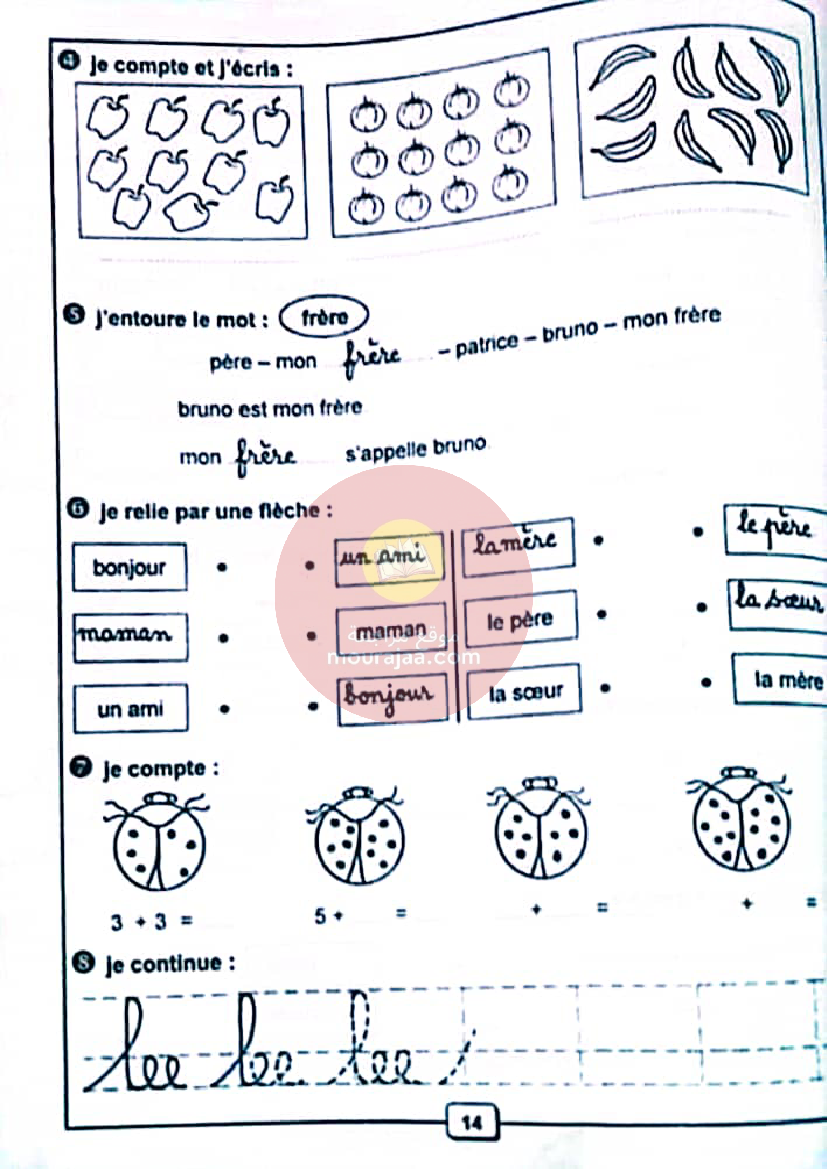 4 Je compte et j'écris :
5 J'entoure le mot : frère
père – mon frère – patrice – bruno – mon frère
bruno est mon frère
mon frère s'appelle bruno
6 je relie par une flèche :
bonjour • • un ami la mère • • le père
maman • • maman le père • • la sœur
un ami • • bonjour la sœur • • la mère
موقع مراجعة
mourajaa.com
7 je compte :
3 + 3 = 5 + = + = + =
8 je continue :
lee lee lee
14